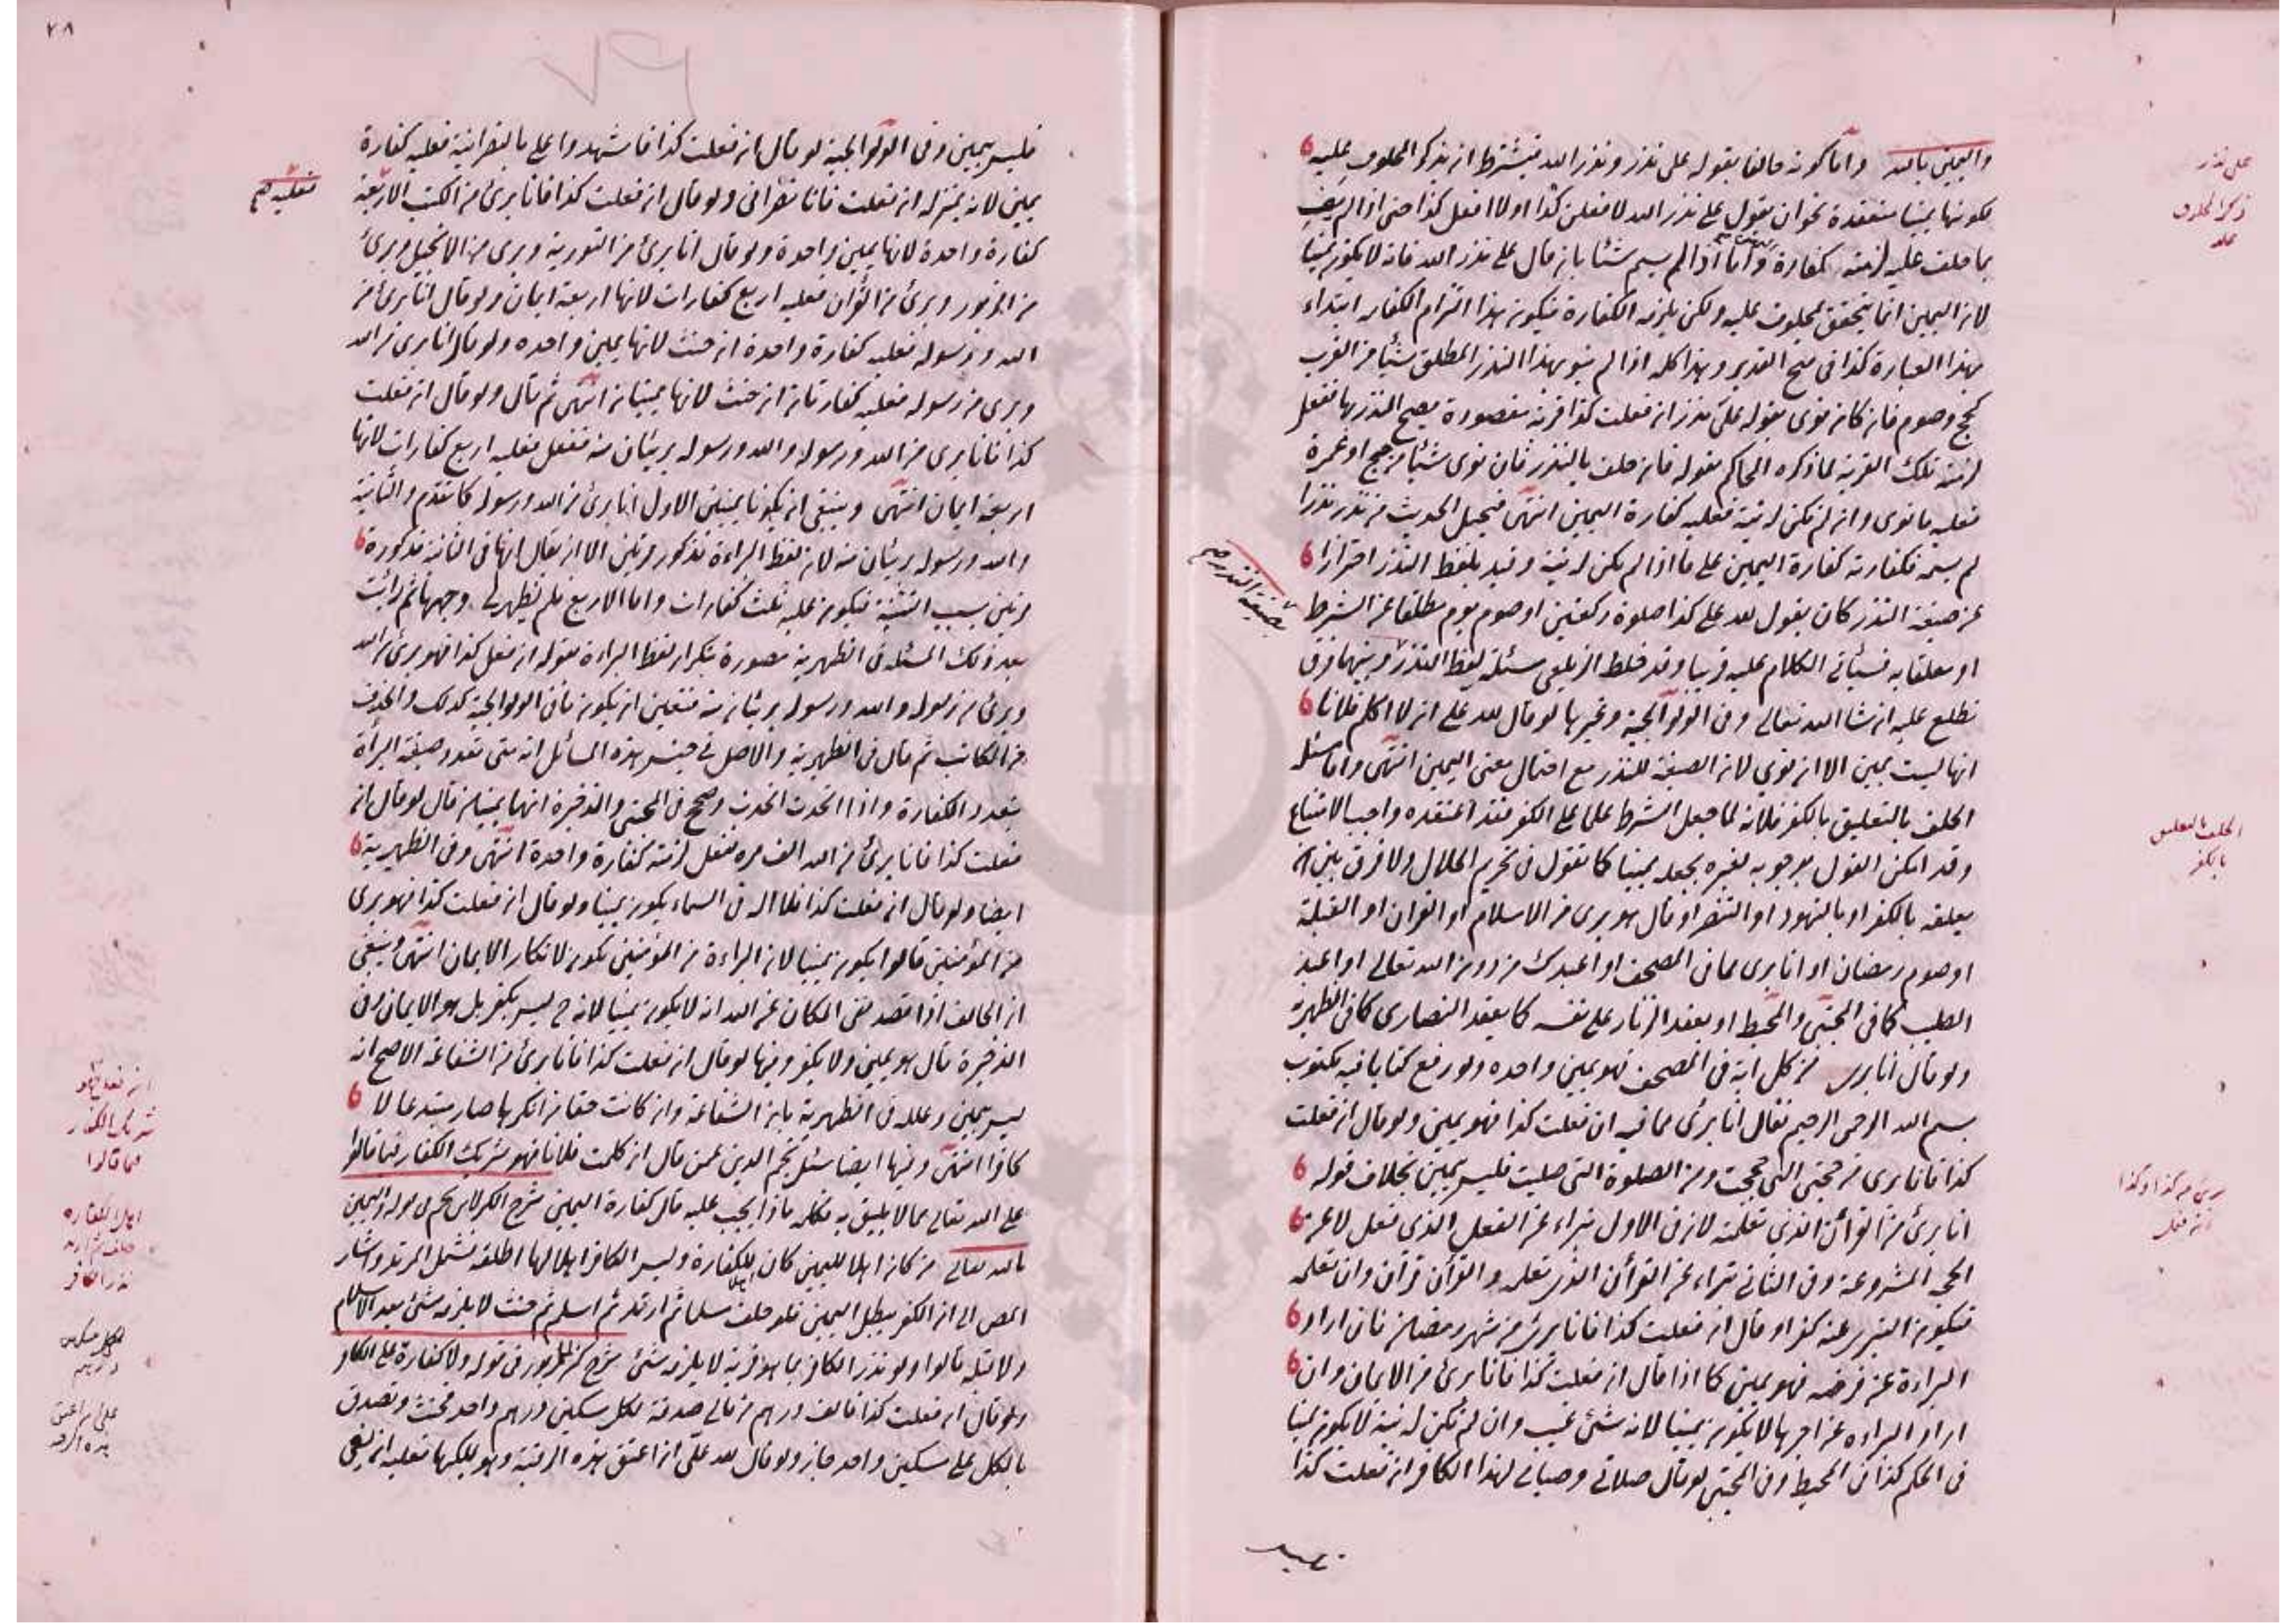 واليمين بالله وأما كونه حالفا بقوله على نذر ونذر الله فيشترط ان يذكر المحلوف عليه
لكونها يمينا منعقدة نحو ان يقول على نذر الله لا فعلن كذا او لا افعل كذا حتى اذا لم يف
بما حلف عليه لزمته كفارة يمين واما اذا لم يسم شئا بان قال على نذر الله فانه لا يكون يمينا
لان اليمين انما يتحقق بمحلوف عليه ولكن يلزمه الكفارة فيكون هذا التزام الكفاره ابتداء
بهذا العبارة كذا فى فتح القدير وهذا كله اذا لم ينو بهذا النذر المطلق شيئا من القرب
كحج وصوم فان كان نوى بقوله على نذر ان فعلت كذا قربة مقصودة يصح النذر بها ففعل
لزمته تلك القربة لما ذكره الحاكم بقوله فان حلف بالنذر فان نوى شيئا من حج او عمرة
فعليه ما نوى وان لم تكن له نية فعليه كفارة اليمين انتهى فيحمل الحديث من نذر نذرا
لم يسمه فكفارته كفارة اليمين على ما اذا لم يكن له نية وقيد بلفظ النذر احترازا
عن صيغة النذر كان يقول لله على كذا صلوة ركعتين او صوم يوم مطلقا عن الشرط
او معلقا به فسيأتى الكلام عليه قريبا وقد خلط الزيلعى مسئلة لفظ النذر وبينهما فرق
نطلع عليه ان شا الله تعالى وفى الولوالجية وغيرها لو قال لله على ان لا اكلم فلانا
انها ليست بيمين الا ان نوى لان الصيغة للنذر مع احتمال معنى اليمين انتهى واما مسئلة
الحلف بالتعليق بالكفر فلانه لما جعل الشرط علما على الكفر فقد اعتقده واجب الامتناع
وقد امكن القول بوجوبه لغيره بجعله يمينا كما نقول فى تحريم الحلال ولا فرق بين ان
يعلقه بالكفر او بالتهود او التنصر او قال هو برى من الاسلام او القران او القبلة
او صوم رمضان او انا برى مما فى المصحف او اعبدك من دون الله تعالى او اعبد
الصليب كما فى المجتبى والمحيط او يعقد الزنار على نفسه كما يعقد النصارى كما فى الظهيرية
ولو قال انا برى من كل اية فى المصحف فهو يمين واحده ولو رفع كتابا فيه مكتوب
بسم الله الرحمن الرحيم فقال انا برئ مما فيه ان فعلت كذا فهو يمين ولو قال ان فعلت
كذا فانا برى من حجتى التى حججت ومن الصلوة التى صليت فليس بيمين بخلاف قوله
انا برئ من القرأن الذى تعلمته لان فى الاول تبراء عن الفعل الذى فعل لا عن
الحجة المشروعة وفى الثانى تبراء عن القرأن الذى تعلمه والقرأن قرآن وان تعلمه
فيكون التبرى عنه كفرا ولو قال ان فعلت كذا فانا برئ من شهر رمضان فان اراد
البراءة عن فرضه فهو يمين كما اذا قال ان فعلت كذا فانا برئ من الايمان وان
اراد البراءه عن اجرها لا يكون يمينا لانه شئ غيب وان لم تكن له نية لا يكون يمينا
فى الحكم كذا فى المحيط وفى المجتبى لو قال صلاتى وصيامى لهذا الكافر ان فعلت كذا
على نذر
ذكر المحلوف
عليه
بصيغة النذر صح
الحلف بالتعليق
بالكفر
فليس بيمين وفى الولوالجية لو قال ان فعلت كذا فاشهدوا على بالنصرانية فعليه كفارة
يمين لانه بمنزلة ان فعلت فانا نصرانى ولو قال ان فعلت كذا فانا برئ من الكتب الاربعة
كفارة واحدة لانها يمين واحدة ولو قال انا برئ من التورية وبرى من الانجيل وبرئ
من الزبور وبرئ من القرآن فعليه اربع كفارات لانها اربعة ايمان ولو قال انا برئ من
الله ورسوله فعليه كفارة واحدة ان حنث لانها يمين واحده ولو قال انا برى من الله
وبرى من رسوله فعليه كفارتان ان حنث لانها يمينان انتهى ثم قال ولو قال ان فعلت
كذا فانا برى من الله ورسوله والله ورسوله بريئان منه ففعل فعليه اربع كفارات لانها
اربعة ايمان انتهى وينبغى ان يكونا يمينين الاول انا برئ من الله ورسوله كما تقدم والثانية
والله ورسوله بريئان منه لان لفظ البراءة مذكور مرتين الا ان يقال انها فى الثانية مذكورة
مرتين بسبب التثنية فيكون عليه ثلث كفارات واما الاربع فلم تظهر لى وجهها ثم رأيت
بعد ذلك المسئلة فى الظهيرية مصورة بتكرار لفظ البراءة بقوله ان فعل كذا فهو برئ من الله
وبرئ من رسوله والله ورسوله بريئان منه فتعين ان يكون ما فى الولوالجية كذلك والحذف
من الكاتب ثم قال فى الظهيرية والاصل فى جنس هذه المسائل انه متى تعدد صيغة البرأة
يتعدد الكفارة واذا اتحدت اتحدت وصحح فى المجتبى والذخيرة انها يمينان قال لو قال ان
فعلت كذا فانا برئ من الله الف مره ففعل لزمته كفارة واحدة انتهى وفى الظهيرية
ايضا ولو قال ان فعلت كذا فلا اله فى السماء يكون يمينا ولو قال ان فعلت كذا فهو برى
من المؤمنين قالوا يكون يمينا لان البراءة من المؤمنين تكون لانكار الايمان انتهى وينبغى
ان الحالف اذا قصد نفى المكان عن الله انه لا يكون يمينا لانه ح ليس بكفر بل هو الايمان وفى
الذخيرة قال هو يمين ولا يكفر وفيها لو قال ان فعلت كذا فانا برئ من الشفاعة الاصح انه
ليس بيمين وعلله فى الظهيرية بان الشفاعة وان كانت حقا من انكرها صار مبتدعا لا
كافرا انتهى وفيها ايضا سئل نجم الدين عمن قال ان كلمت فلانا فهو شريك الكفار فيما قالوا
على الله تعالى مما لا يليق به فكلمه ماذا يجب عليه قال كفارة اليمين شرح الكنز لابن نجيم فى قوله واليمين
بالله تعالى من كان اهلا لليمين كان اهلا للكفارة وليس الكافر اهلا لها اطلقه فشمل المرتد واشار
المص الى ان الكفر يبطل اليمين فلو حلف مسلما ثم ارتد ثم اسلم ثم حنث لا يلزمه شئ بعد الاسلام
ولا قبله قالوا ولو نذر الكافر بما هو قربة لا يلزمه شئ شرح كنز المزبور فى قوله ولا كفارة على الكافر
ولو قال ان فعلت كذا فالف درهم من مالى صدقة لكل مسكين درهم واحد فحنث وتصدق
بالكل على مسكين واحد جاز ولو قال لله على ان اعتق هذه الرقبة وهو يملكها فعليه ان يفى
فعليه صح
شريك الكفار
فيما قالوا
اهلا للكفاره
نذر الكافر
لكل مسكين
درهم
٢٨